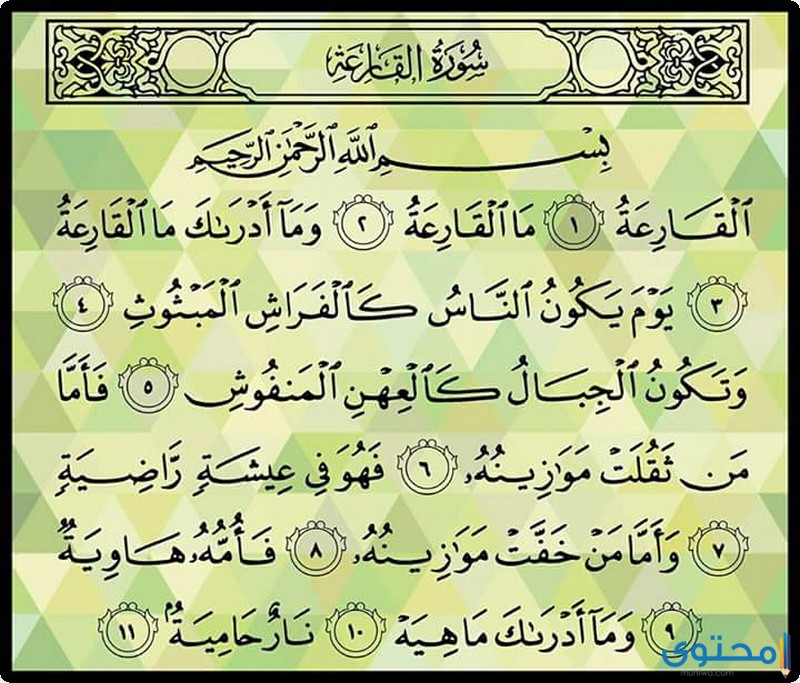 سُورَةُ القَارِعَة
بِسْمِ ٱللَّهِ ٱلرَّحْمَٰنِ ٱلرَّحِيمِ
ٱلْقَارِعَةُ ١ مَا ٱلْقَارِعَةُ ٢ وَمَآ أَدْرَىٰكَ مَا ٱلْقَارِعَةُ
٣ يَوْمَ يَكُونُ ٱلنَّاسُ كَٱلْفَرَاشِ ٱلْمَبْثُوثِ ٤
وَتَكُونُ ٱلْجِبَالُ كَٱلْعِهْنِ ٱلْمَنفُوشِ ٥ فَأَمَّا
مَن ثَقُلَتْ مَوَٰزِينُهُۥ ٦ فَهُوَ فِى عِيشَةٍ رَّاضِيَةٍ
٧ وَأَمَّا مَنْ خَفَّتْ مَوَٰزِينُهُۥ ٨ فَأُمُّهُۥ هَاوِيَةٌ
٩ وَمَآ أَدْرَىٰكَ مَا هِيَهْ ١٠ نَارٌ حَامِيَةٌۢ ١١
محتوى
muhtwa.com